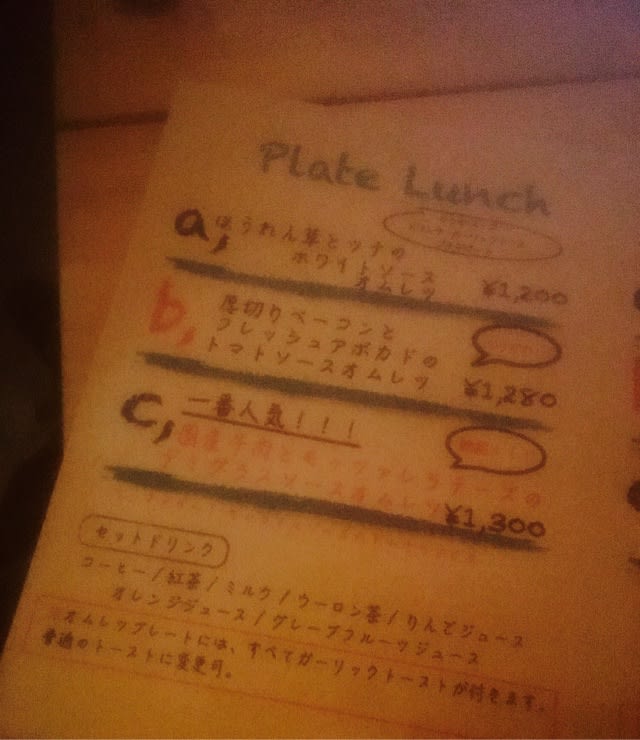 Plate Lunch
a, ほうれん草とツナの
ホワイトソース
オムレツ ¥1,200
b, 厚切りベーコンと
フレッシュアボカドの
トマトソースオムレツ ¥1,280
c, 一番人気！！！
国産牛肉とモッツァレラチーズの
デミグラスソースオムレツ
¥1,300
セットドリンク
コーヒー/紅茶/ミルク/ウーロン茶/りんごジュース
オレンジジュース/グレープフルーツジュース
オムレツプレートには、すべてガーリックトーストが付きます。
普通のトーストに変更可。